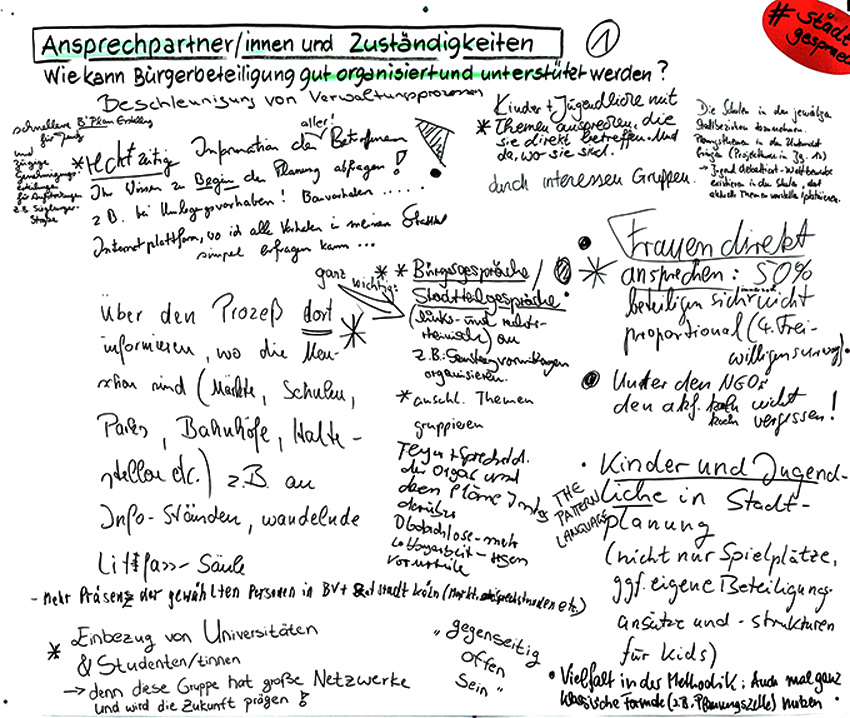 # Städt
gesprä
Ansprechpartner/innen und Zuständigkeiten
1
Wie kann Bürgerbeteiligung gut organisiert und unterstützt werden?
Beschleunigung von Verwaltungsprozessen
schnellere B'Plan Erstellung
und
zügige
Genehmigungs-
z.B.
Straße
aller!
* rechtzeitig Information der Betroffenen
Ihr Wissen zu Beginn der Planung abfragen!
z.B. bei Umlegungsvorhaben! Bauvorhaben .....
Internetplattform, wo ich alle Vorhaben in meinem Stadtteil
simpel erfragen kann ...
Kinder + Jugendliche mit
* Themen ansprechen, die
sie direkt betreffen. Und
da, wo sie sind.
durch Interessen Gruppen.
Die Schulen in den jeweiligen
Stadtbezirken
Planungsthemen in den Unterricht
→ Jugend debattiert - Wettbewerbe
existieren in den Schulen, dort
aktuelle Themen
ganz wichtig:
* * Bürgergespräche /
Stadtteilgespräche
(links- und rechts-
rheinisch) an
z.B. Samstagvormittagen
organisieren.
* anschl. Themen
gruppieren
der Orga und
deren Pläne
darüber
Obdachlose - mehr
Lobbyarbeit - gegen
Vorurteile
Über den Prozeß dort
informieren, wo die Men-
schen sind (Märkte, Schulen,
Parks, Bahnhöfe, Halte-
stellen etc.) z.B. an
Info-Ständen, wandelnde
Litfass-Säule
Frauen direkt
* ansprechen: 50%
beteiligen sich nicht
proportional (4. Frei-
willigensurvey).
Unter den NGOs
den akf. köln nicht
köln vergessen!
THE
PATTERN
LANGUAGE
• Kinder und Jugend-
liche in Stadt-
planung
(nicht nur Spielplätze,
ggf. eigene Beteiligungs-
ansätze und -strukturen
für Kids)
- Mehr Präsenz der gewählten Personen in BV + Rat stadt köln (Markt, Sprechstunden etc.)
* Einbezug von Universitäten
& Studenten/tinnen
→ denn diese Gruppe hat große Netzwerke
und wird die Zukunft prägen!
„gegenseitig
offen
sein"
• Vielfalt in der Methodik: Auch mal ganz
klassische Formate (z.B. Planungszelle) nutzen